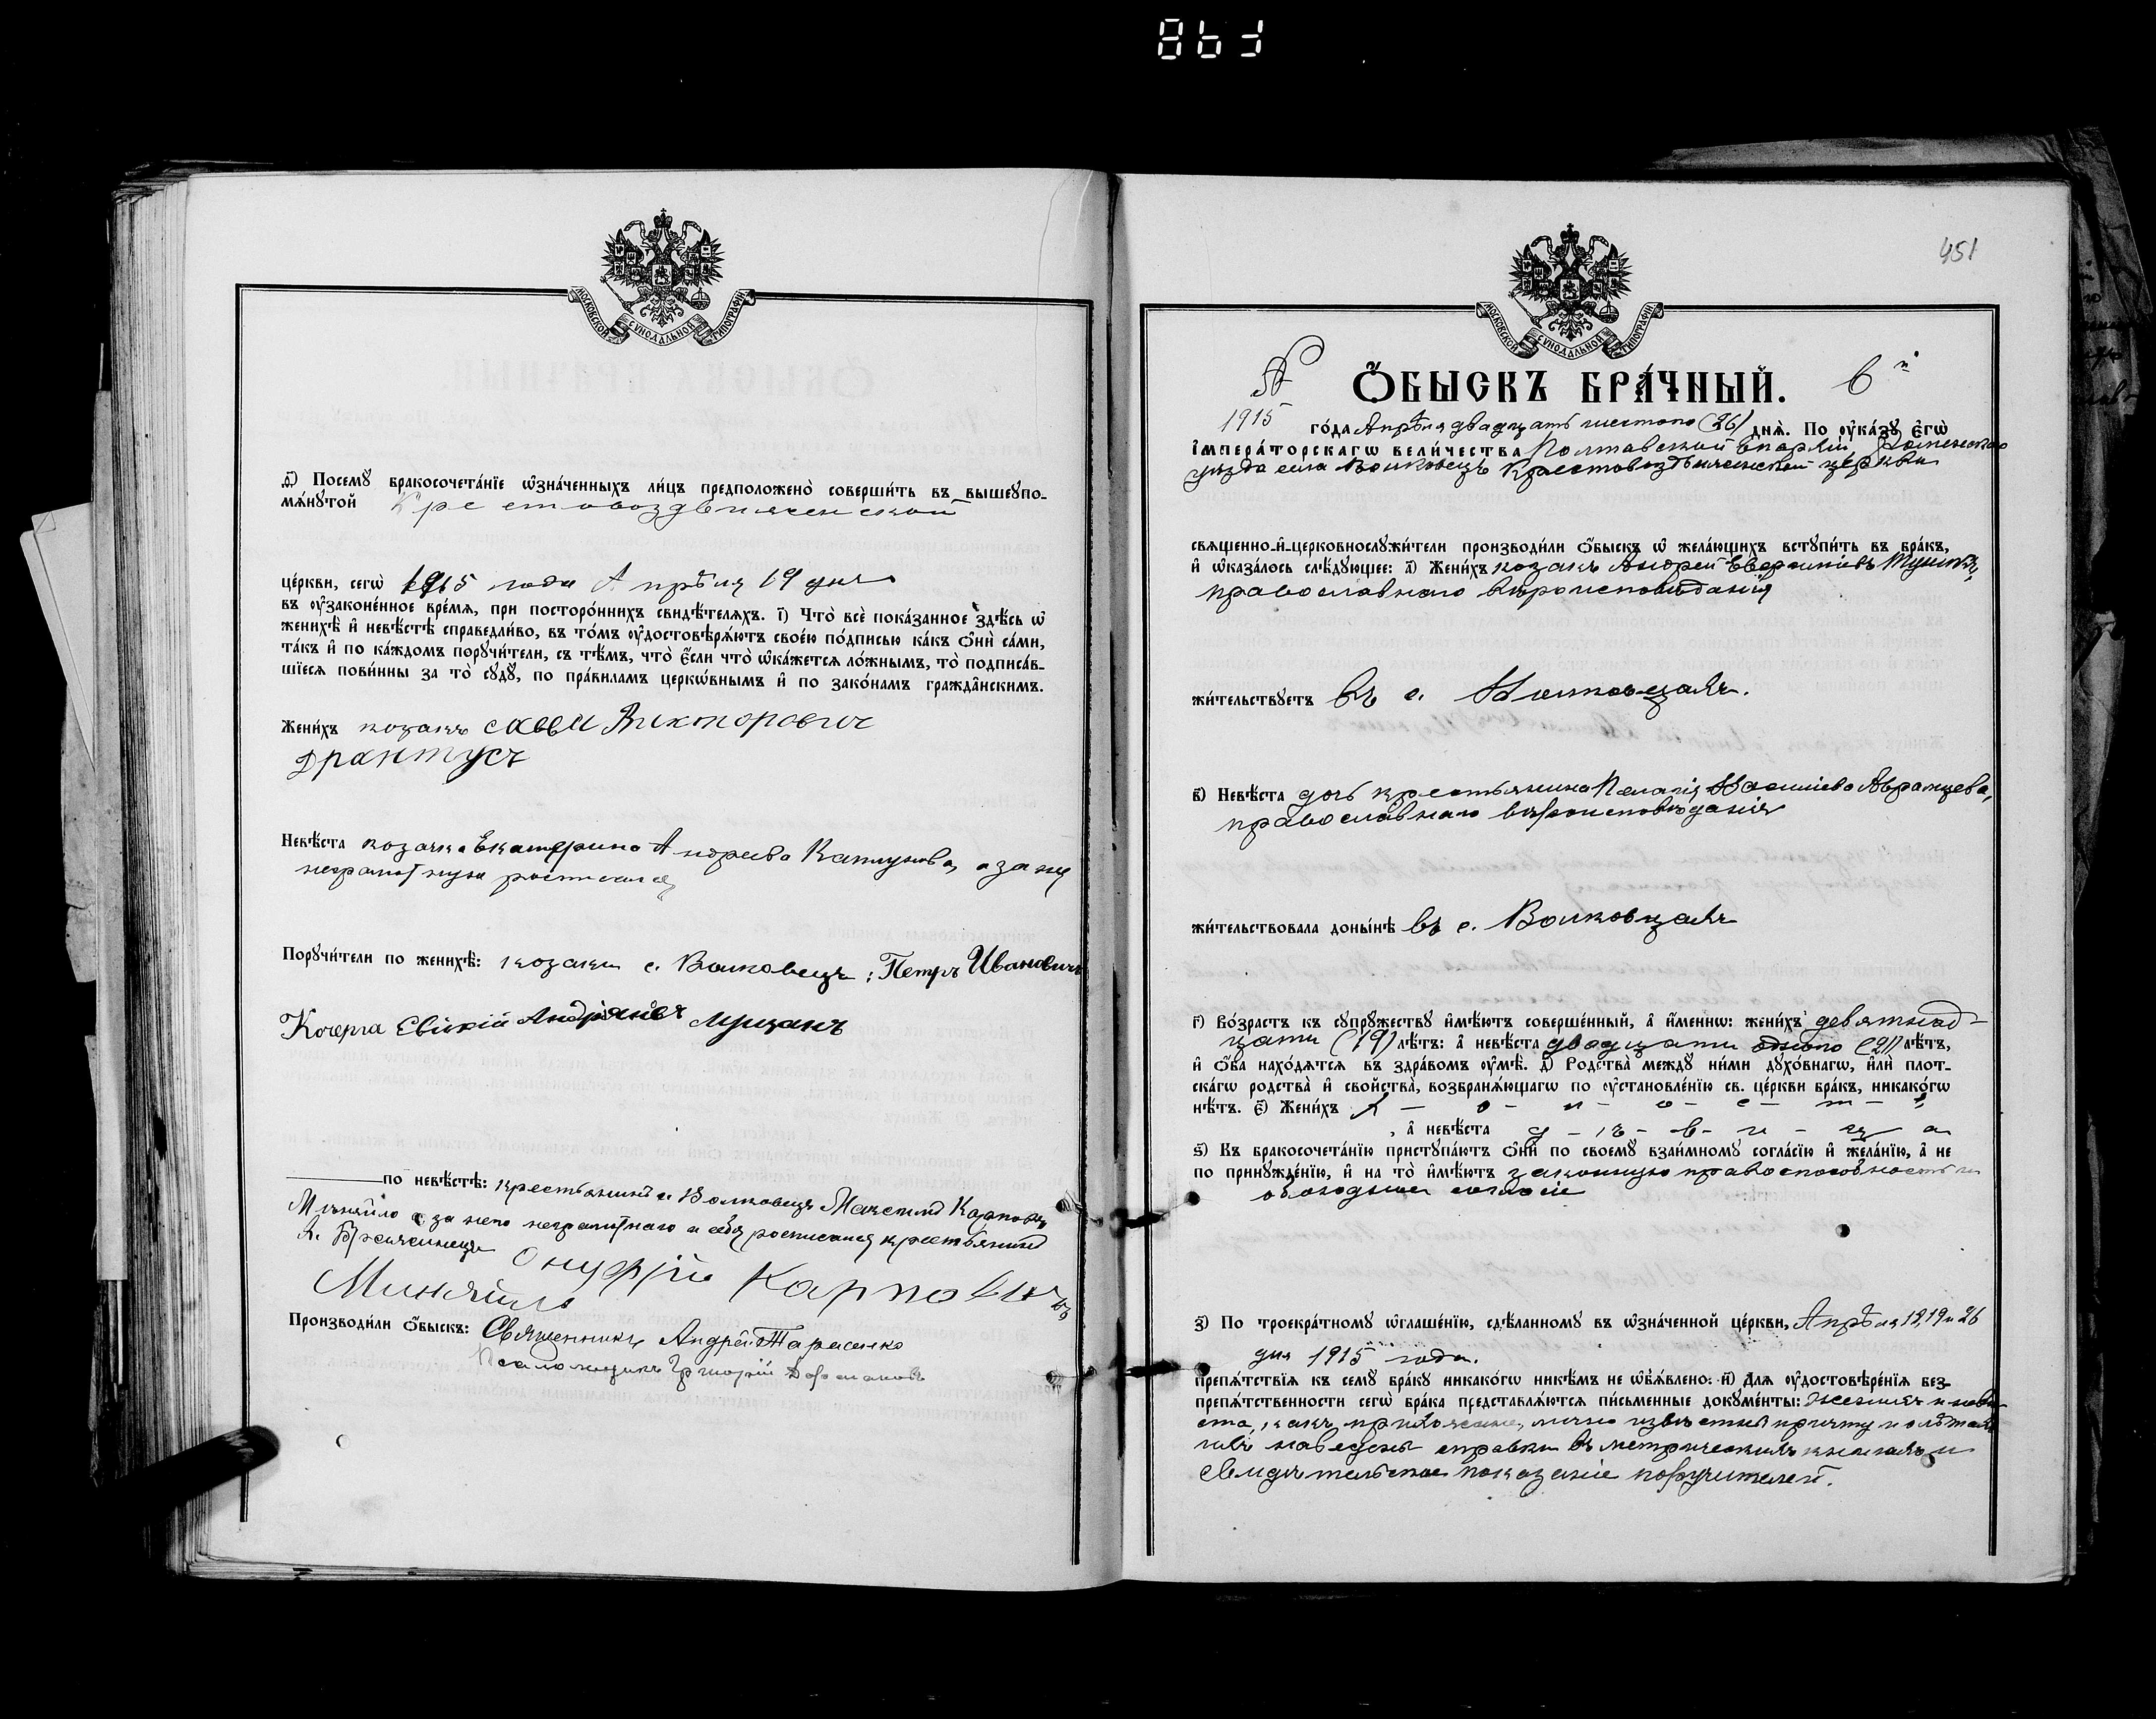 МОСКОВСКОЙ СУНОДАЛЬНОЙ ТИПОГРАФІИ
д҃і) Посемꙋ̀ бракосочета́ніе ѡ҆зна́ченныхъ ли́цъ предположено̀ соверши́ть въ вышеꙋпо-
мѧ́нꙋтой Крестовоздвиженской
це́ркви, сегѡ̀ 1915 года Апрѣля 19 дня
въ ᲂу҆законе́нное вре́мѧ, при посторо́ннихъ свидѣ́телѧхъ. і҃) Что̀ всѐ пока́занное здѣ́сь ѡ҆
женихѣ̀ и҆ невѣ́стѣ справедли́во, въ то́мъ ᲂу҆достовѣрѧ́ютъ свое́ю по́дписью ка́къ ѻ҆нѝ са́ми,
та́къ и҆ по ка́ждомъ порꙋчи́тели, съ тѣ́мъ, что̀ є҆́сли что̀ ѡ҆ка́жетсѧ ло́жнымъ, то̀ подписа́в-
шіесѧ пови́нны за то̀ сꙋдꙋ̀, по пра́виламъ церкѡ́внымъ и҆ по зако́намъ гражда̂нскимъ.
Жени́хъ козакъ Савви Викторовичъ
Драктусъ
Невѣ́ста козачка Екатерина Андреева а за нея
неграмотную росписался
Порꙋчи́тели по женихѣ̀: козаки с. Волковецъ: Петръ Ивановичъ
Кочерга Андріановъ Мицанъ
по невѣ́стѣ: крестьянинъ с. Волковецъ Максимъ Карповъ
Миняйло а за него неграмотнаго и себя росписался крестьянинъ
Онуфрій Карповичъ
Миняйло
Производи́ли ѻ҆́быскъ: Священникъ Андрей Тарасенко
Псаломщикъ Григорій
451
МОСКОВСКОЙ СУНОДАЛЬНОЙ ТИПОГРАФІИ
№ Ѻ҆́БЫСКЪ БРА́ЧНЫЙ. 6й
1915 го́да Апрѣля двадцать шестого (26) днѧ̀. По ᲂу҆ка́зꙋ є҆гѡ̀
і҆мпера́торскагѡ вели́чества Полтавской Епархіи Роменскаго
уѣзда села Волковецъ Крестовоздвиженской церкви
свѧщенно-и҆-церковнослꙋжи́тели производи́ли ѻ҆́быскъ ѡ҆ жела́ющихъ встꙋпи́ть въ бра́къ,
и҆ ѡ҆каза́лось слѣ́дꙋющее: а҃) Жени́хъ козакъ Андрей
православнаго вѣроисповѣданія
жи́тельствꙋетъ въ с. Волковцахъ.
в҃) Невѣ́ста дочь крестьянина Пелагія
православнаго вѣроисповѣданія
жи́тельствовала доны́нѣ въ с. Волковцахъ
г҃) Во́зрастъ къ сꙋпрꙋ́жествꙋ и҆мѣ́ютъ соверше́нный, а҆ и҆́меннѡ: жени́хъ девятнад-
цати (19) лѣ́тъ: а҆ невѣ́ста двадцати одного (21) лѣ́тъ,
и҆ ѻ҆́ба нахо́дѧтсѧ въ здра́вомъ ᲂу҆мѣ̀. д҃) Родства̀ междꙋ ни́ми дꙋхо́внагѡ, и҆лѝ плот-
ска́гѡ родства̀ и҆ свойства̀, возбранѧ́ющагѡ по ᲂу҆становле́нію св. це́ркви бра́къ, никако́гѡ
нѣ́тъ. є҃) Жени́хъ х – о – л – о – с – т – ъ
, а҆ невѣ́ста д – ѣ – в – и – ц – а
ѕ҃) Къ бракосочета́нію пристꙋпа́ютъ ѻ҆нѝ по своемꙋ̀ взаи́мномꙋ согла́сію и҆ жела́нію, а҆ не
по принꙋжде́нію, и҆ на то̀ и҆мѣ́ютъ законную правоспособность и
обоюдное согласіе
з҃) По троекра́тномꙋ ѡ҆глаше́нію, сдѣ́ланномꙋ въ ѡ҆зна́ченной це́ркви, Апрѣля 12, 19 и 26
дня 1915 года.
препѧ́тствіѧ къ семꙋ̀ бра́кꙋ никако́гѡ никѣ́мъ не ѡ҆б̾ѧ́влено: и҃) Длѧ ᲂу҆достовѣре́ніѧ без-
препѧ́тственности сегѡ̀ бра́ка представлѧ́ютсѧ пи́сьменные докꙋме́нты: женихъ и невѣ-
ста, какъ прихожане, лично извѣстны причту и о лѣтахъ
ихъ наведены справки въ метрическихъ книгахъ и
свидѣтельское показаніе поручителей.